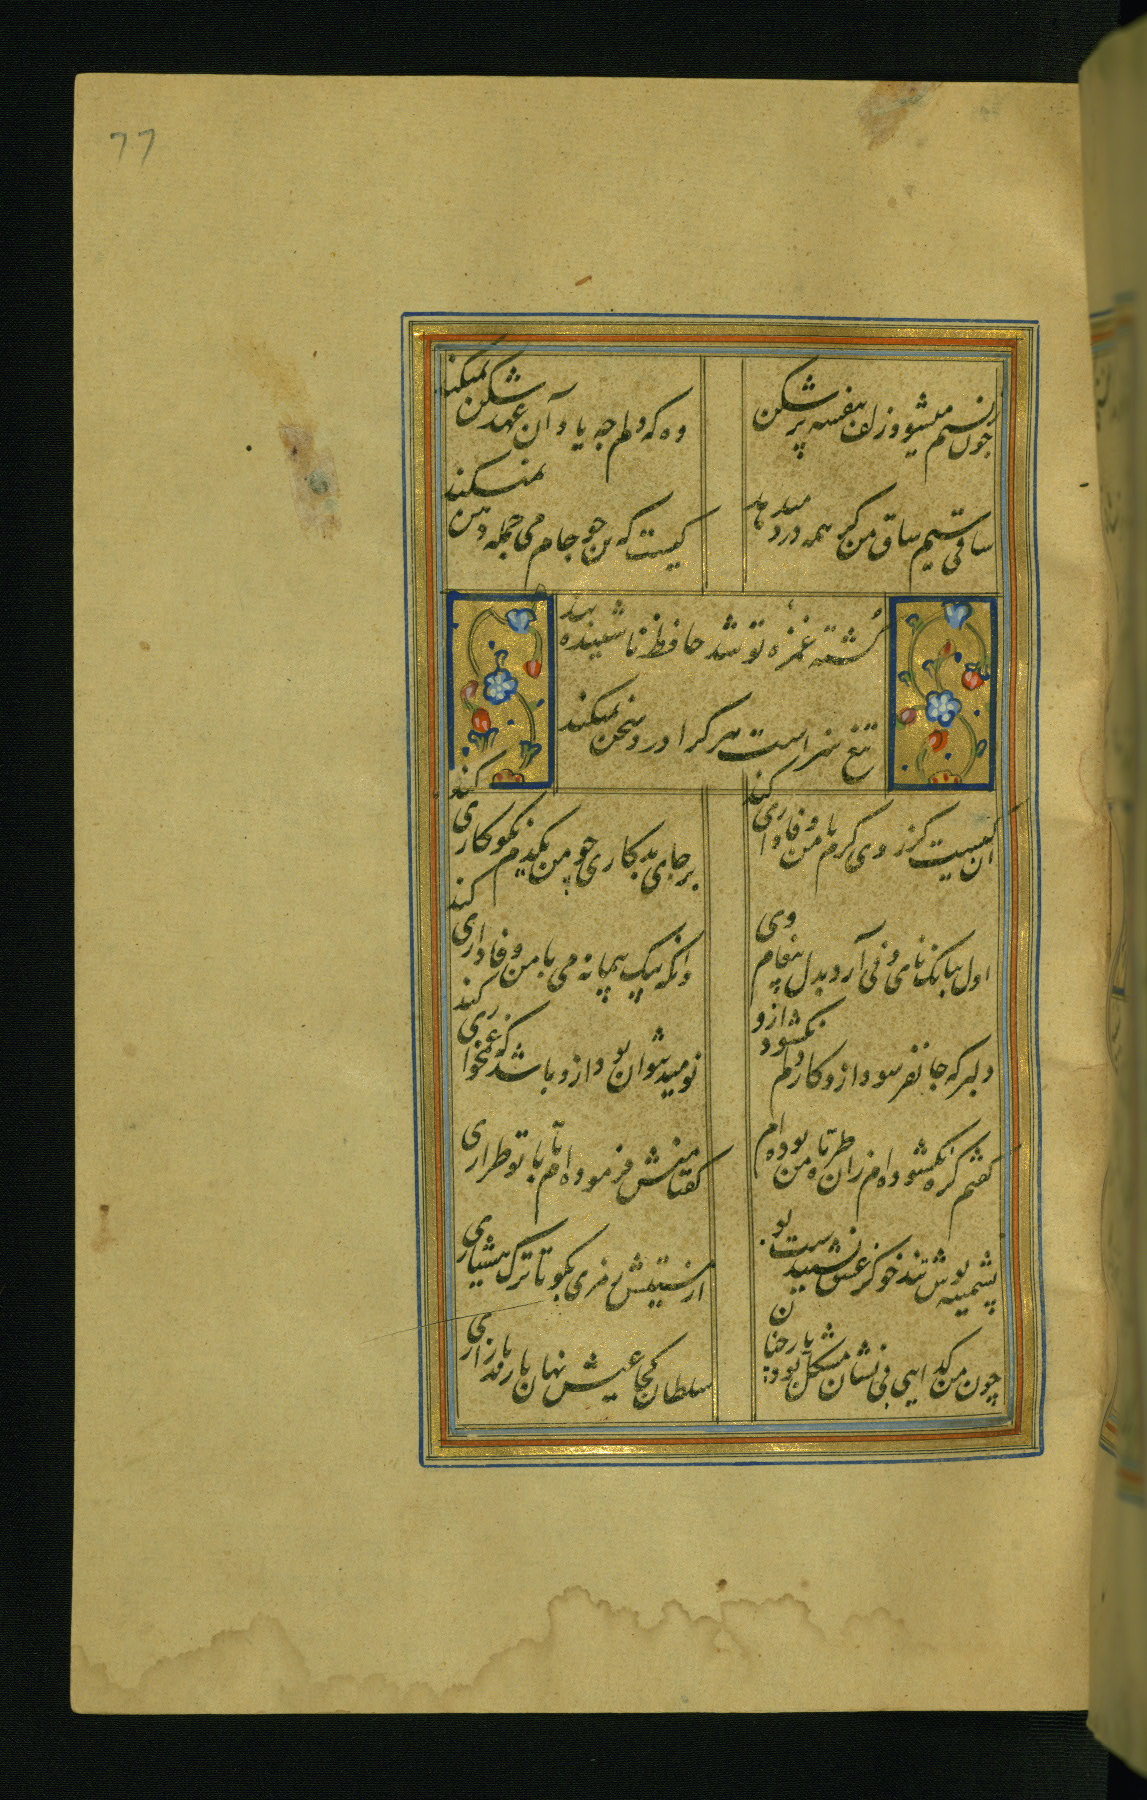 77
چون ز نسیم میشود زلف بنفشه پر شکن
وه که دلم چه یاد آن عهد شکن نمیکند
ساقی سیم ساق من گر همه درد میدهد
کیست که تن چو جام می جمله دهن نمیکند
کشته غمزه تو شد حافظ ناشنیده پند
تیغ سزاست هر کرا درد سخن نمیکند
آن کیست کز روی کرم با من وفاداری کند
بر جای بدکاری چو من یکدم نکوکاری کند
اول ببانک نای و نی آرد بدل پیغام وی
وانگه بیک پیمانه می با من وفاداری کند
دلبر که جان فرسود ازو کار دلم نکشود ازو
نومید نتوان بود ازو باشد که غمخواری کند
گفتم گره نکشوده ام زان طره تا من بوده ام
گفتا منش فرموده ام تا با تو طراری
پشمینه پوش تندخو کز عشق نشنیدست بو
از مستیش رمزی بگو تا ترک هشیاری
چون من گدایی بی نشان مشکل بود یاری چنان
سلطان کجا عیش نهان با رند بازاری